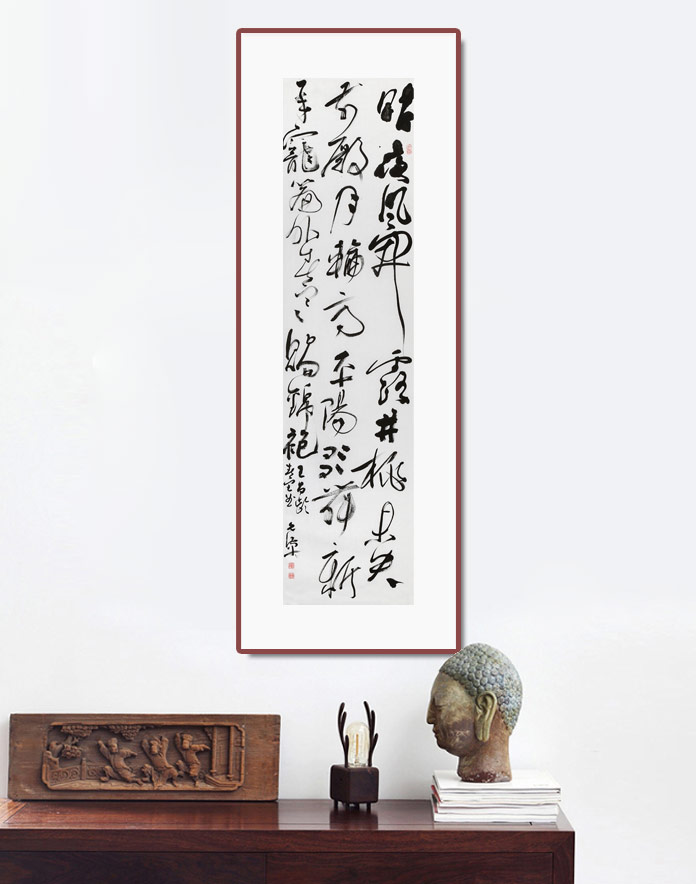 昨夜風開露井桃未央
前殿月輪高平陽歌舞新
承寵簾外春寒賜錦袍
王昌齡
春宮曲